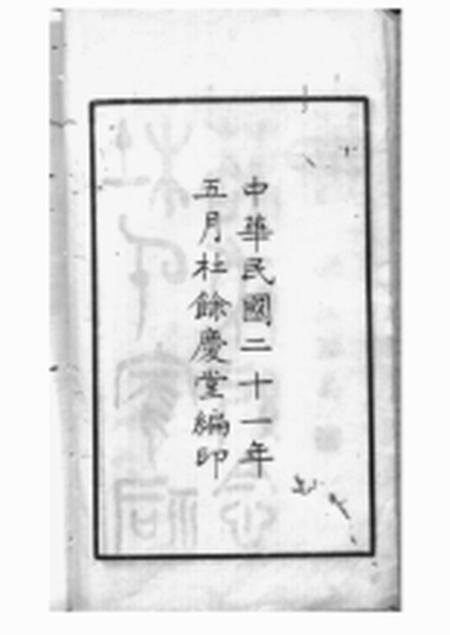 中華民國二十一年
五月杜餘慶堂編印